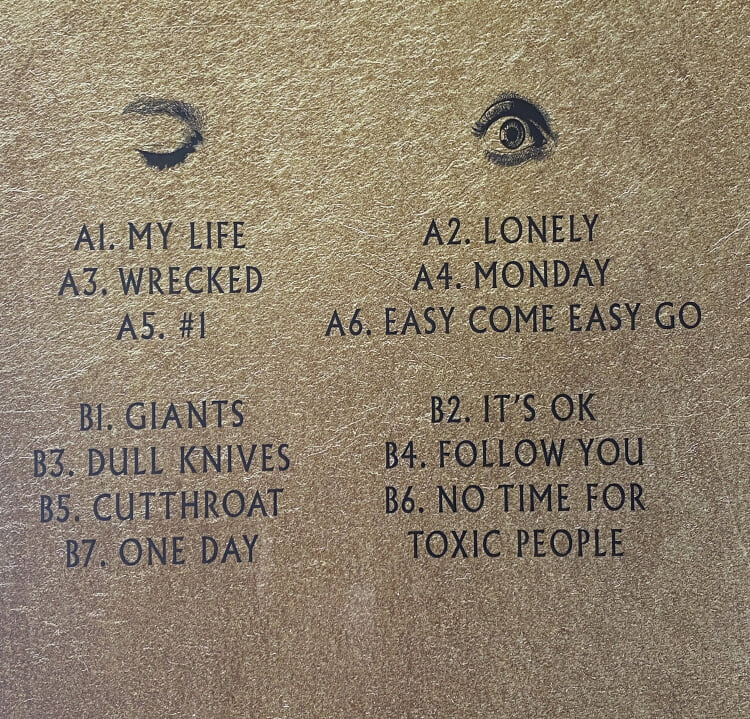 A1. MY LIFE
A3. WRECKED
A5. #1
A2. LONELY
A4. MONDAY
A6. EASY COME EASY GO
B1. GIANTS
B3. DULL KNIVES
B5. CUTTHROAT
B7. ONE DAY
B2. IT'S OK
B4. FOLLOW YOU
B6. NO TIME FOR
TOXIC PEOPLE